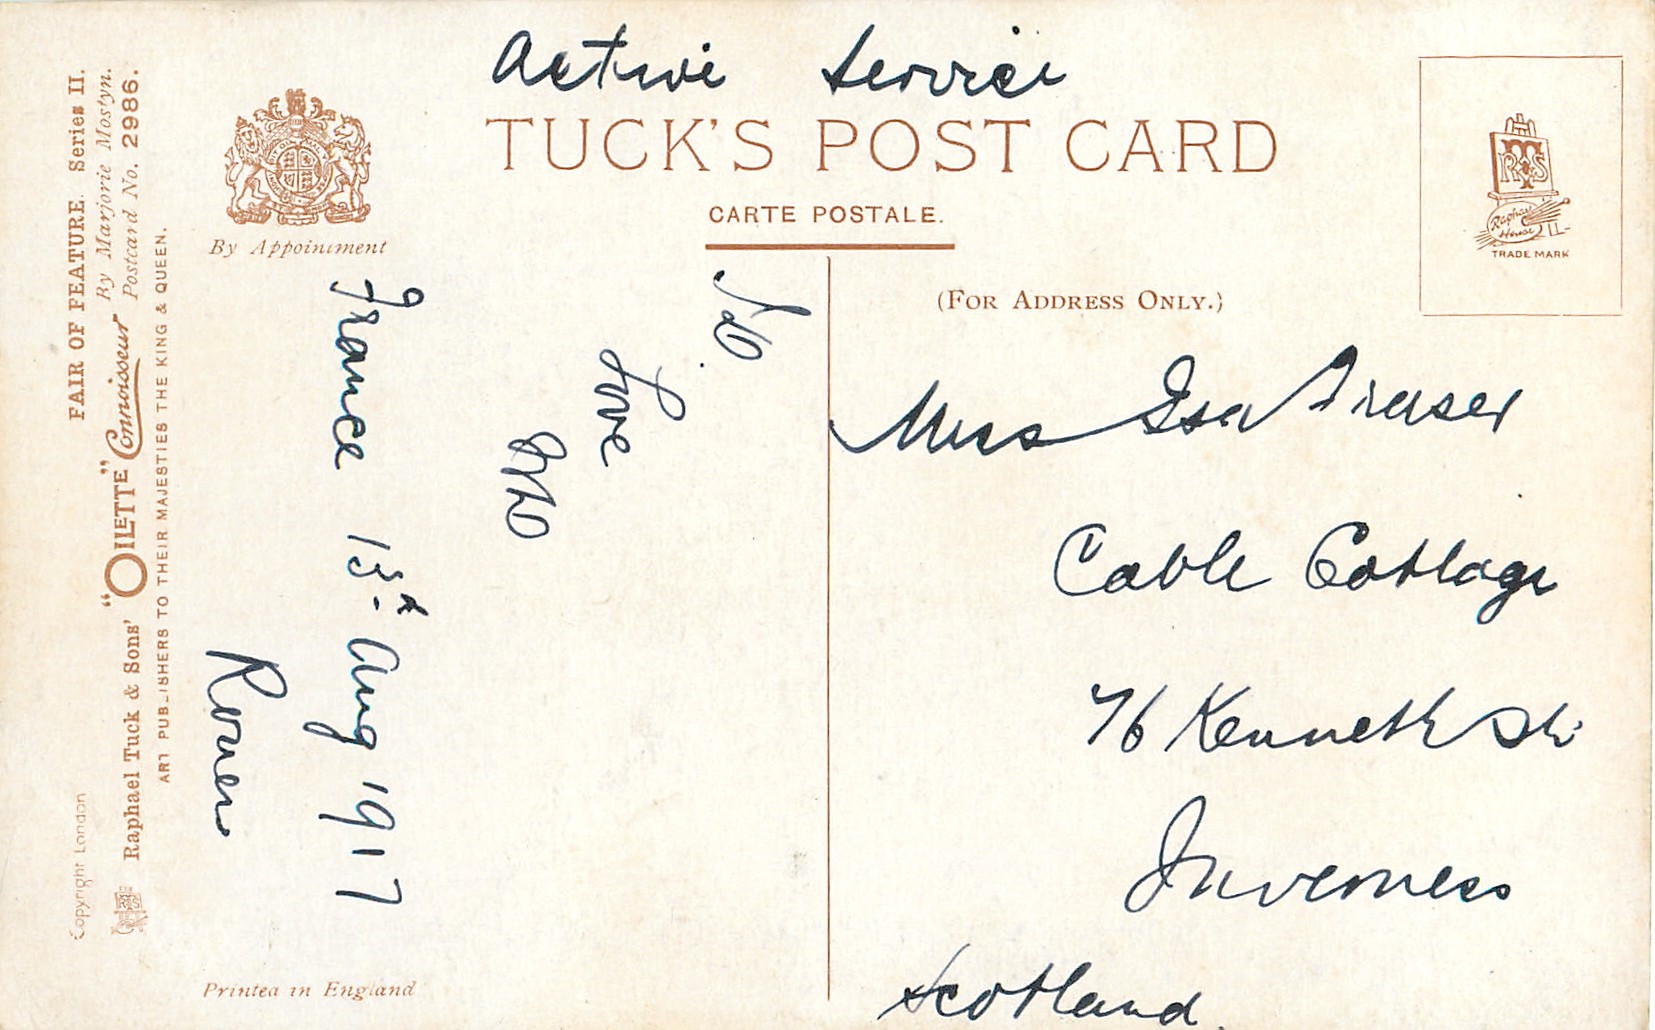 Active Service
TUCK'S POST CARD
CARTE POSTALE.
(FOR ADDRESS ONLY.)
Miss Isa Fraser
Cable Cottage
76 Kenneth St.
Inverness
Scotland.
Love
France 13th Aug 1917
Rouen
By Appointment
FAIR OF FEATURE. Series II.
By Marjorie Mostyn.
Postcard No. 2986.
Raphael Tuck & Sons' "OILETTE" Connoisseur
ART PUBLISHERS TO THEIR MAJESTIES THE KING & QUEEN.
Copyright London
Printed in England
RTS
Raphael House
TRADE MARK